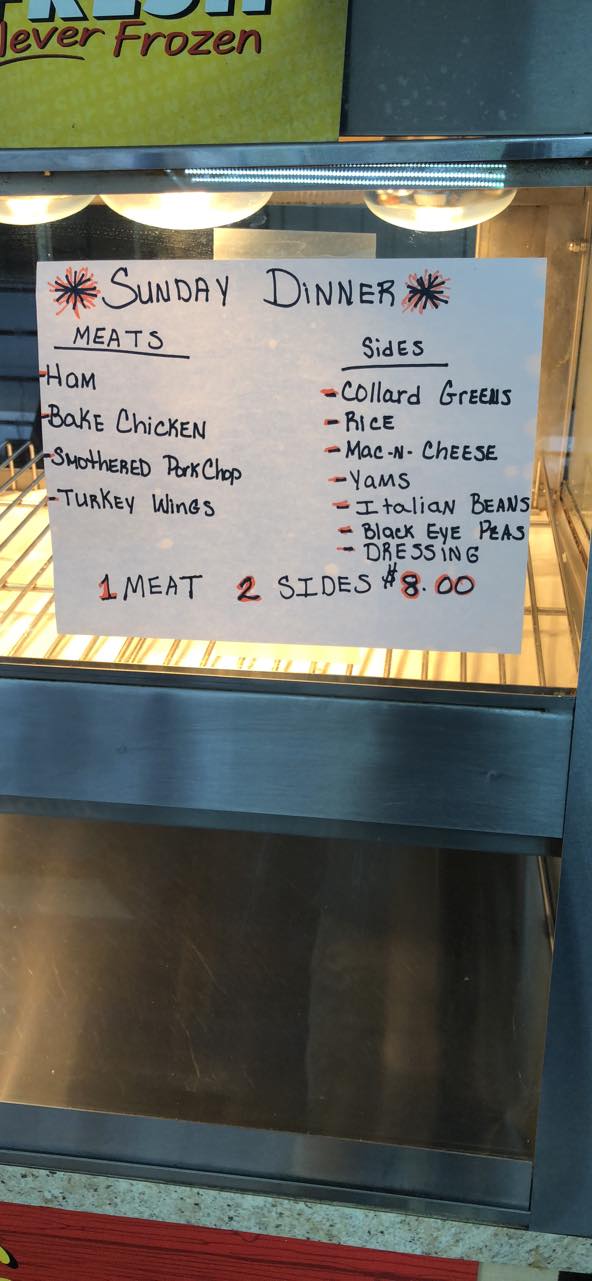 Never Frozen
SUNDAY DINNER
MEATS
-Ham
-BAKE CHICKEN
-SMOTHERED PORK CHOP
-TURKEY WINGS
SidES
-Collard GREENS
-RICE
-MAC-N-CHEESE
-YAMS
-Italian BEANS
-Black EYE PEAS
-DRESSING
1 MEAT 2 SIDES $8.00